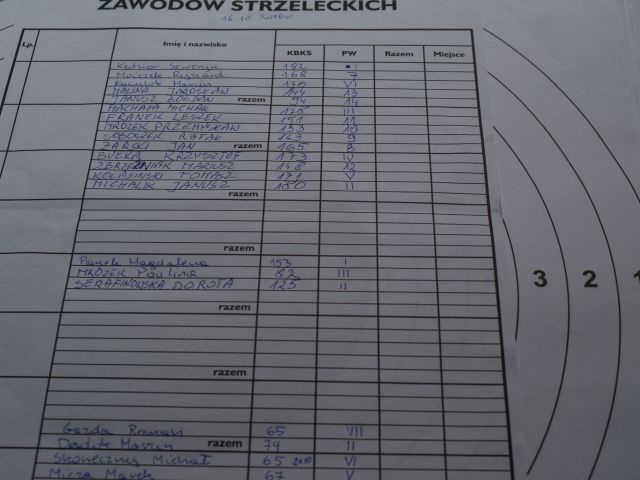 ZAWODÓW STRZELECKICH
16.10.2016r
Lp. Imię i nazwisko KBKS PW Razem Miejsce
192 I
168 7
Marcin 170 VI
MALINA JAROSŁAW 144 13
JANUSZ BOGDAN razem 94 14
MACHAŁA MICHAŁ III
FRANEK LESZEK 151 11
MROZEK PRZEMYSŁAW 153 10
SOBOSZEK RAFAŁ 163 9
ŻARSKI JAN razem 165 8
BUCKA KRZYSZTOF 173 IV
MARIUSZ 148 12
KOLASIŃSKI TOMASZ 171 V
MICHALIK JANUSZ 180 II
razem
razem
Panek Magdalena 153 I
MROZEK Paulina 82 III
SERAFINOWSKA DOROTA 125 II
razem
razem
Gazda Roman 65 VII
Dudek Marcin razem 74 II
Skoneczny Michał 65 2x10 VI
Marek 67 V
3 2 1